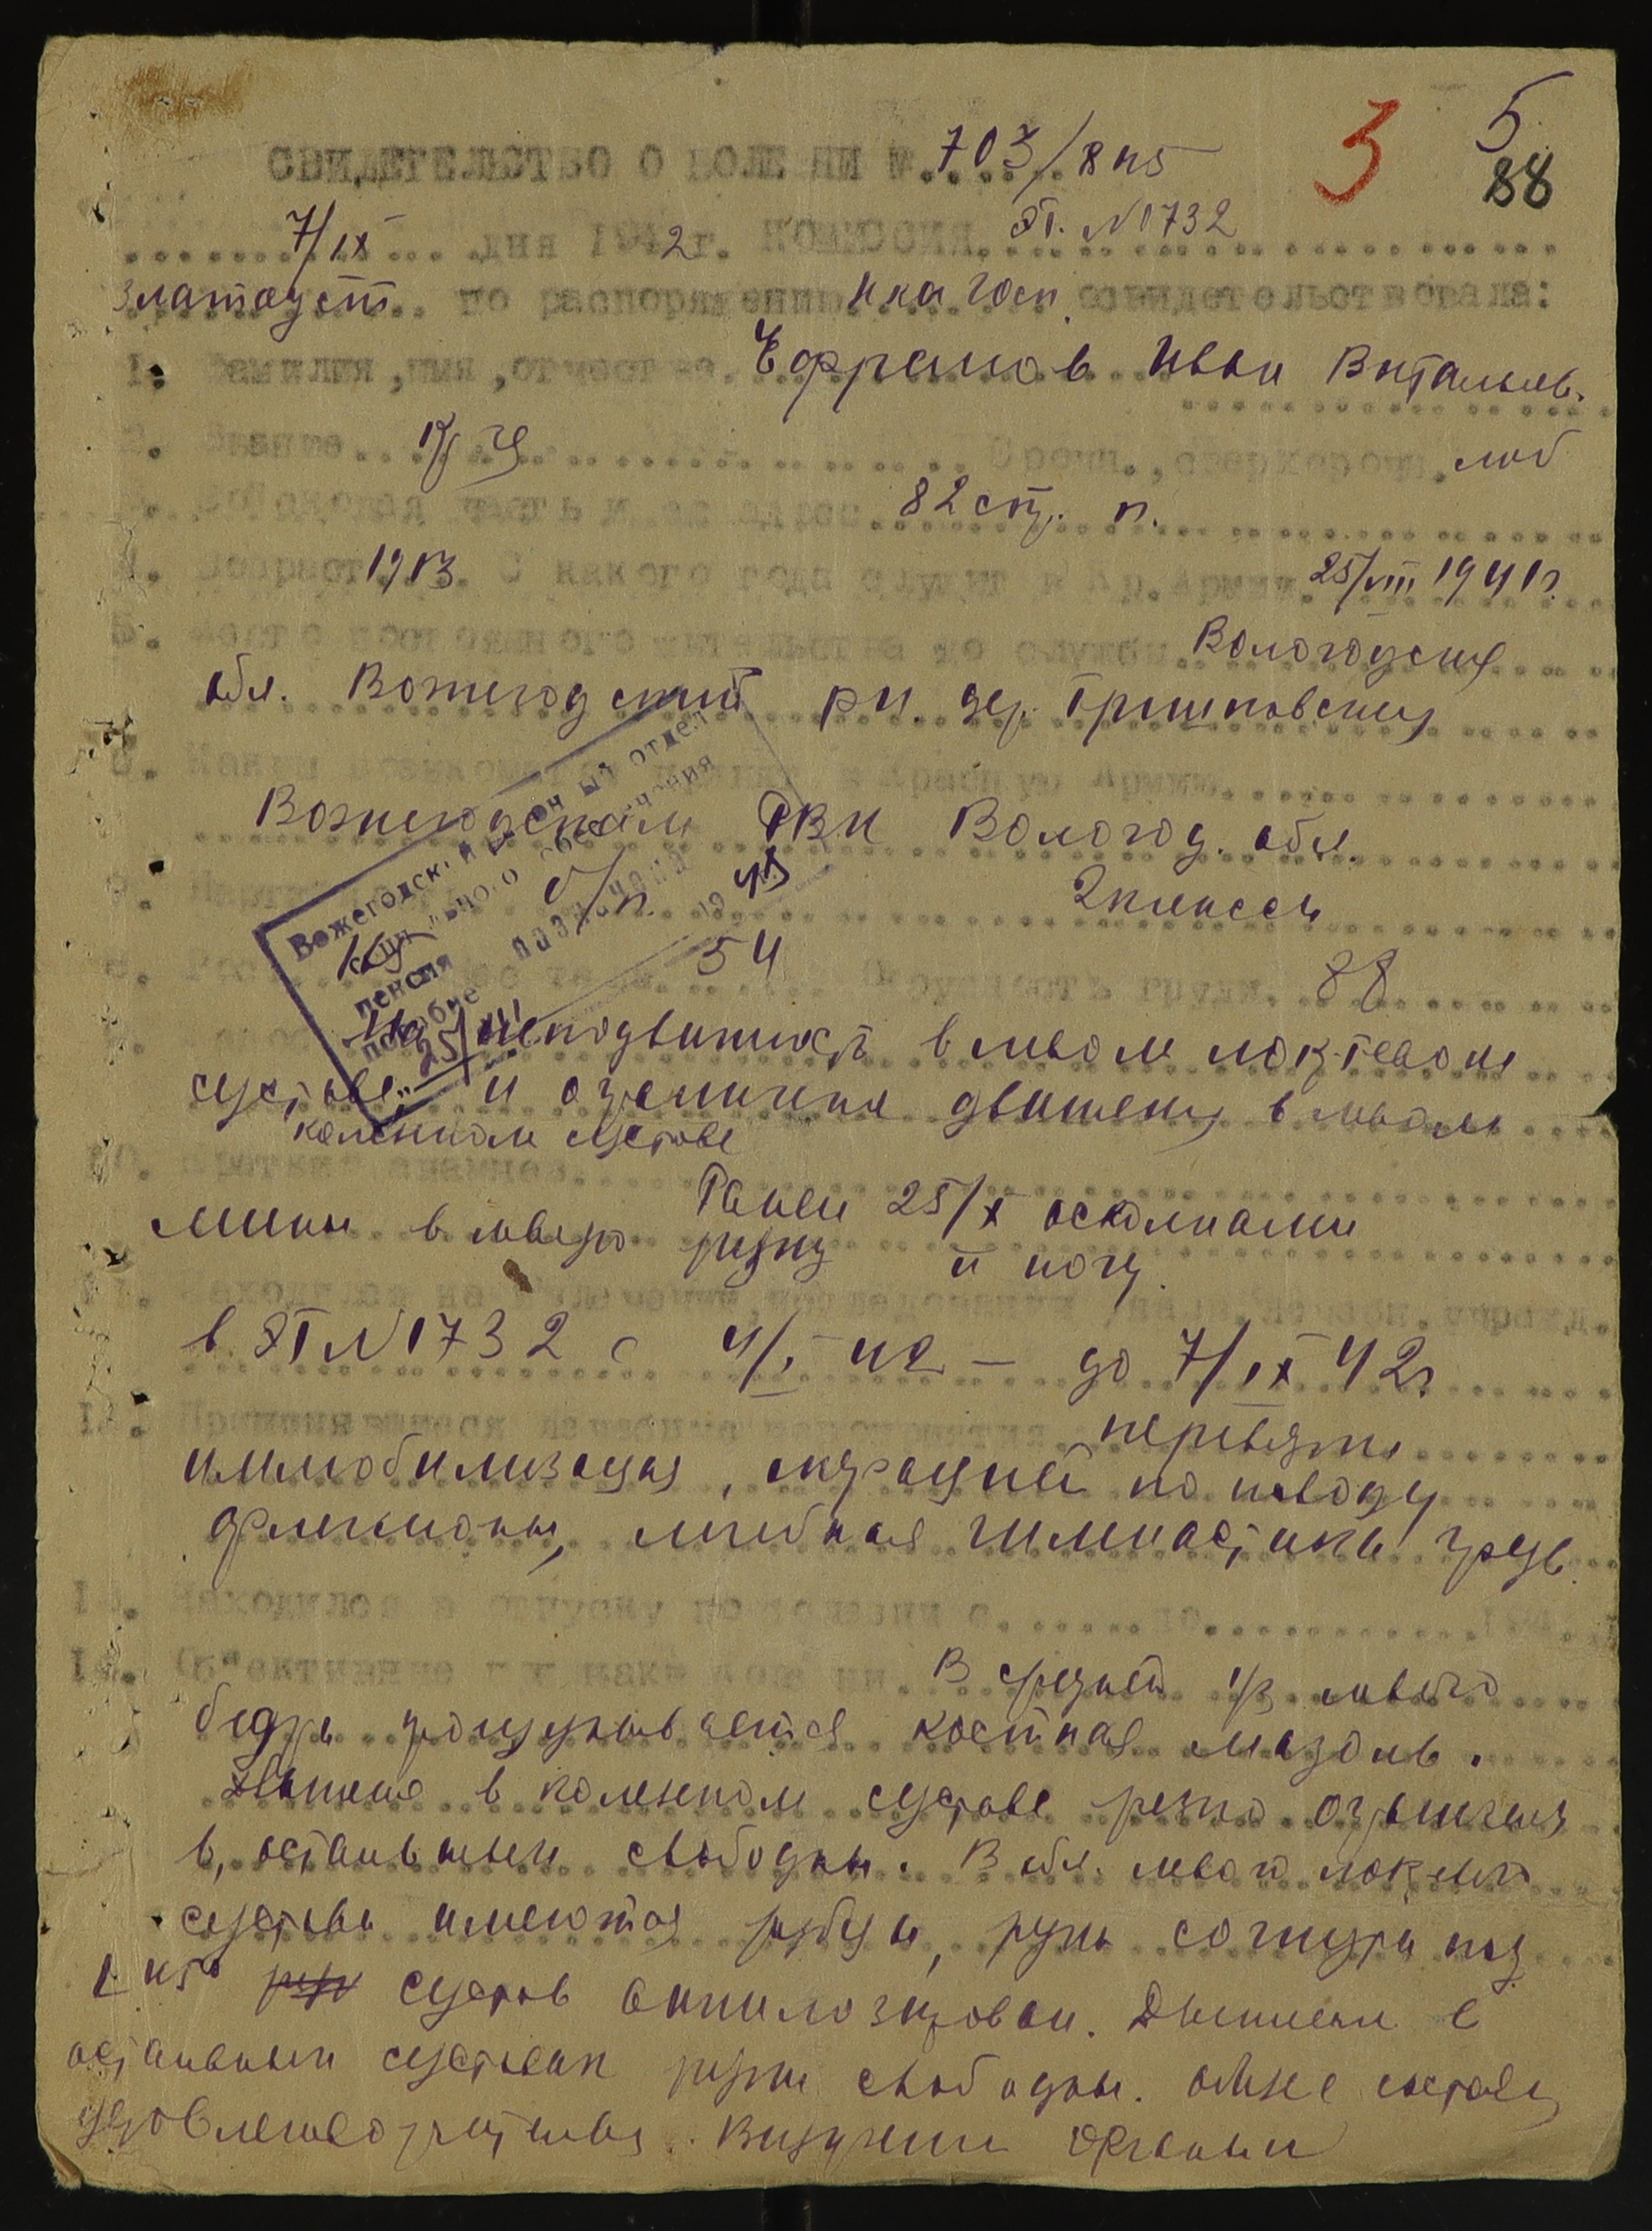 3 5
88
СВИДЕТЕЛЬСТВО О БОЛЕЗНИ № 703/8 п5
7/IX дня 1942 г. КОМИССИЯ ЭГ. №1732
Златоуст по распоряжению нка госп. освидетельствовала:
1. Фамилия, имя, отчество. Ефрамов Иван Витальев.
2. Звание Срочн., сверхсрочн. моб
3. Воинская часть и ее адрес 82 стр. п.
4. Возраст 1913 С какого года служит в Кр. Армии. 25/VIII 1941 г.
5. Место постоянного жительства до службы Вологодская
обл. Вожегодский р-н. дер. Гришковская
6. Каким военкоматом принят в Красную Армию.
Вожегодским РВК Вологод. обл.
7. б/п. 2 класса
8. Рост вес тела 54 Окружность груди. 88
9. неподвижность в левом локтевом
суставе и ограничение движения в левом
коленном суставе
10. Краткий анамнез.
Ранен 25/X осколками
мины в левую руку и ногу.
11. Находился на излечении,
в ЭГ №1732 с 4/I 42 – до 7/IX 42 г
12. Применявшиеся лечебные мероприятия. перевязки
иммобилизация, операцией по поводу
флегмоны, лечебная гимнастика, гряз.
13. Находился в отпуску по болезни с по 194
14. Объективные признаки болезни. В средней 1/3 левого
бедра прощупывается костная мазоль.
Движение в коленном суставе резко ограничен
в остальных свободны. В обл. левого локтевого
сустава имеются рубцы, рука согнута под
сустав анкилозирован. Движения в
остальных суставах руки свободны. Общее состояние
удовлетворительное. Внутрение органы
Вожегодский районный отдел
социального обеспечения
пенсия назначена
пособие
25/VIII 19 43